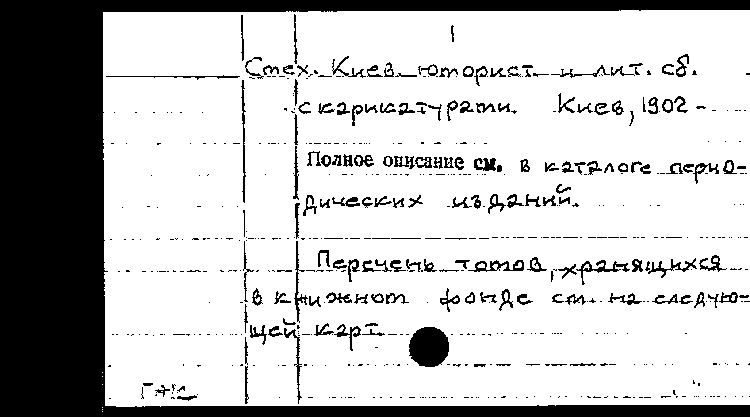 1
Смех. Киев. юморист. и лит. сб.
с карикатурами. Киев, 1902 -
Полное описание см. в каталоге перио-
дических изданий.
Перечень томов, хранящихся
в книжном фонде см. на следую-
щей карт.